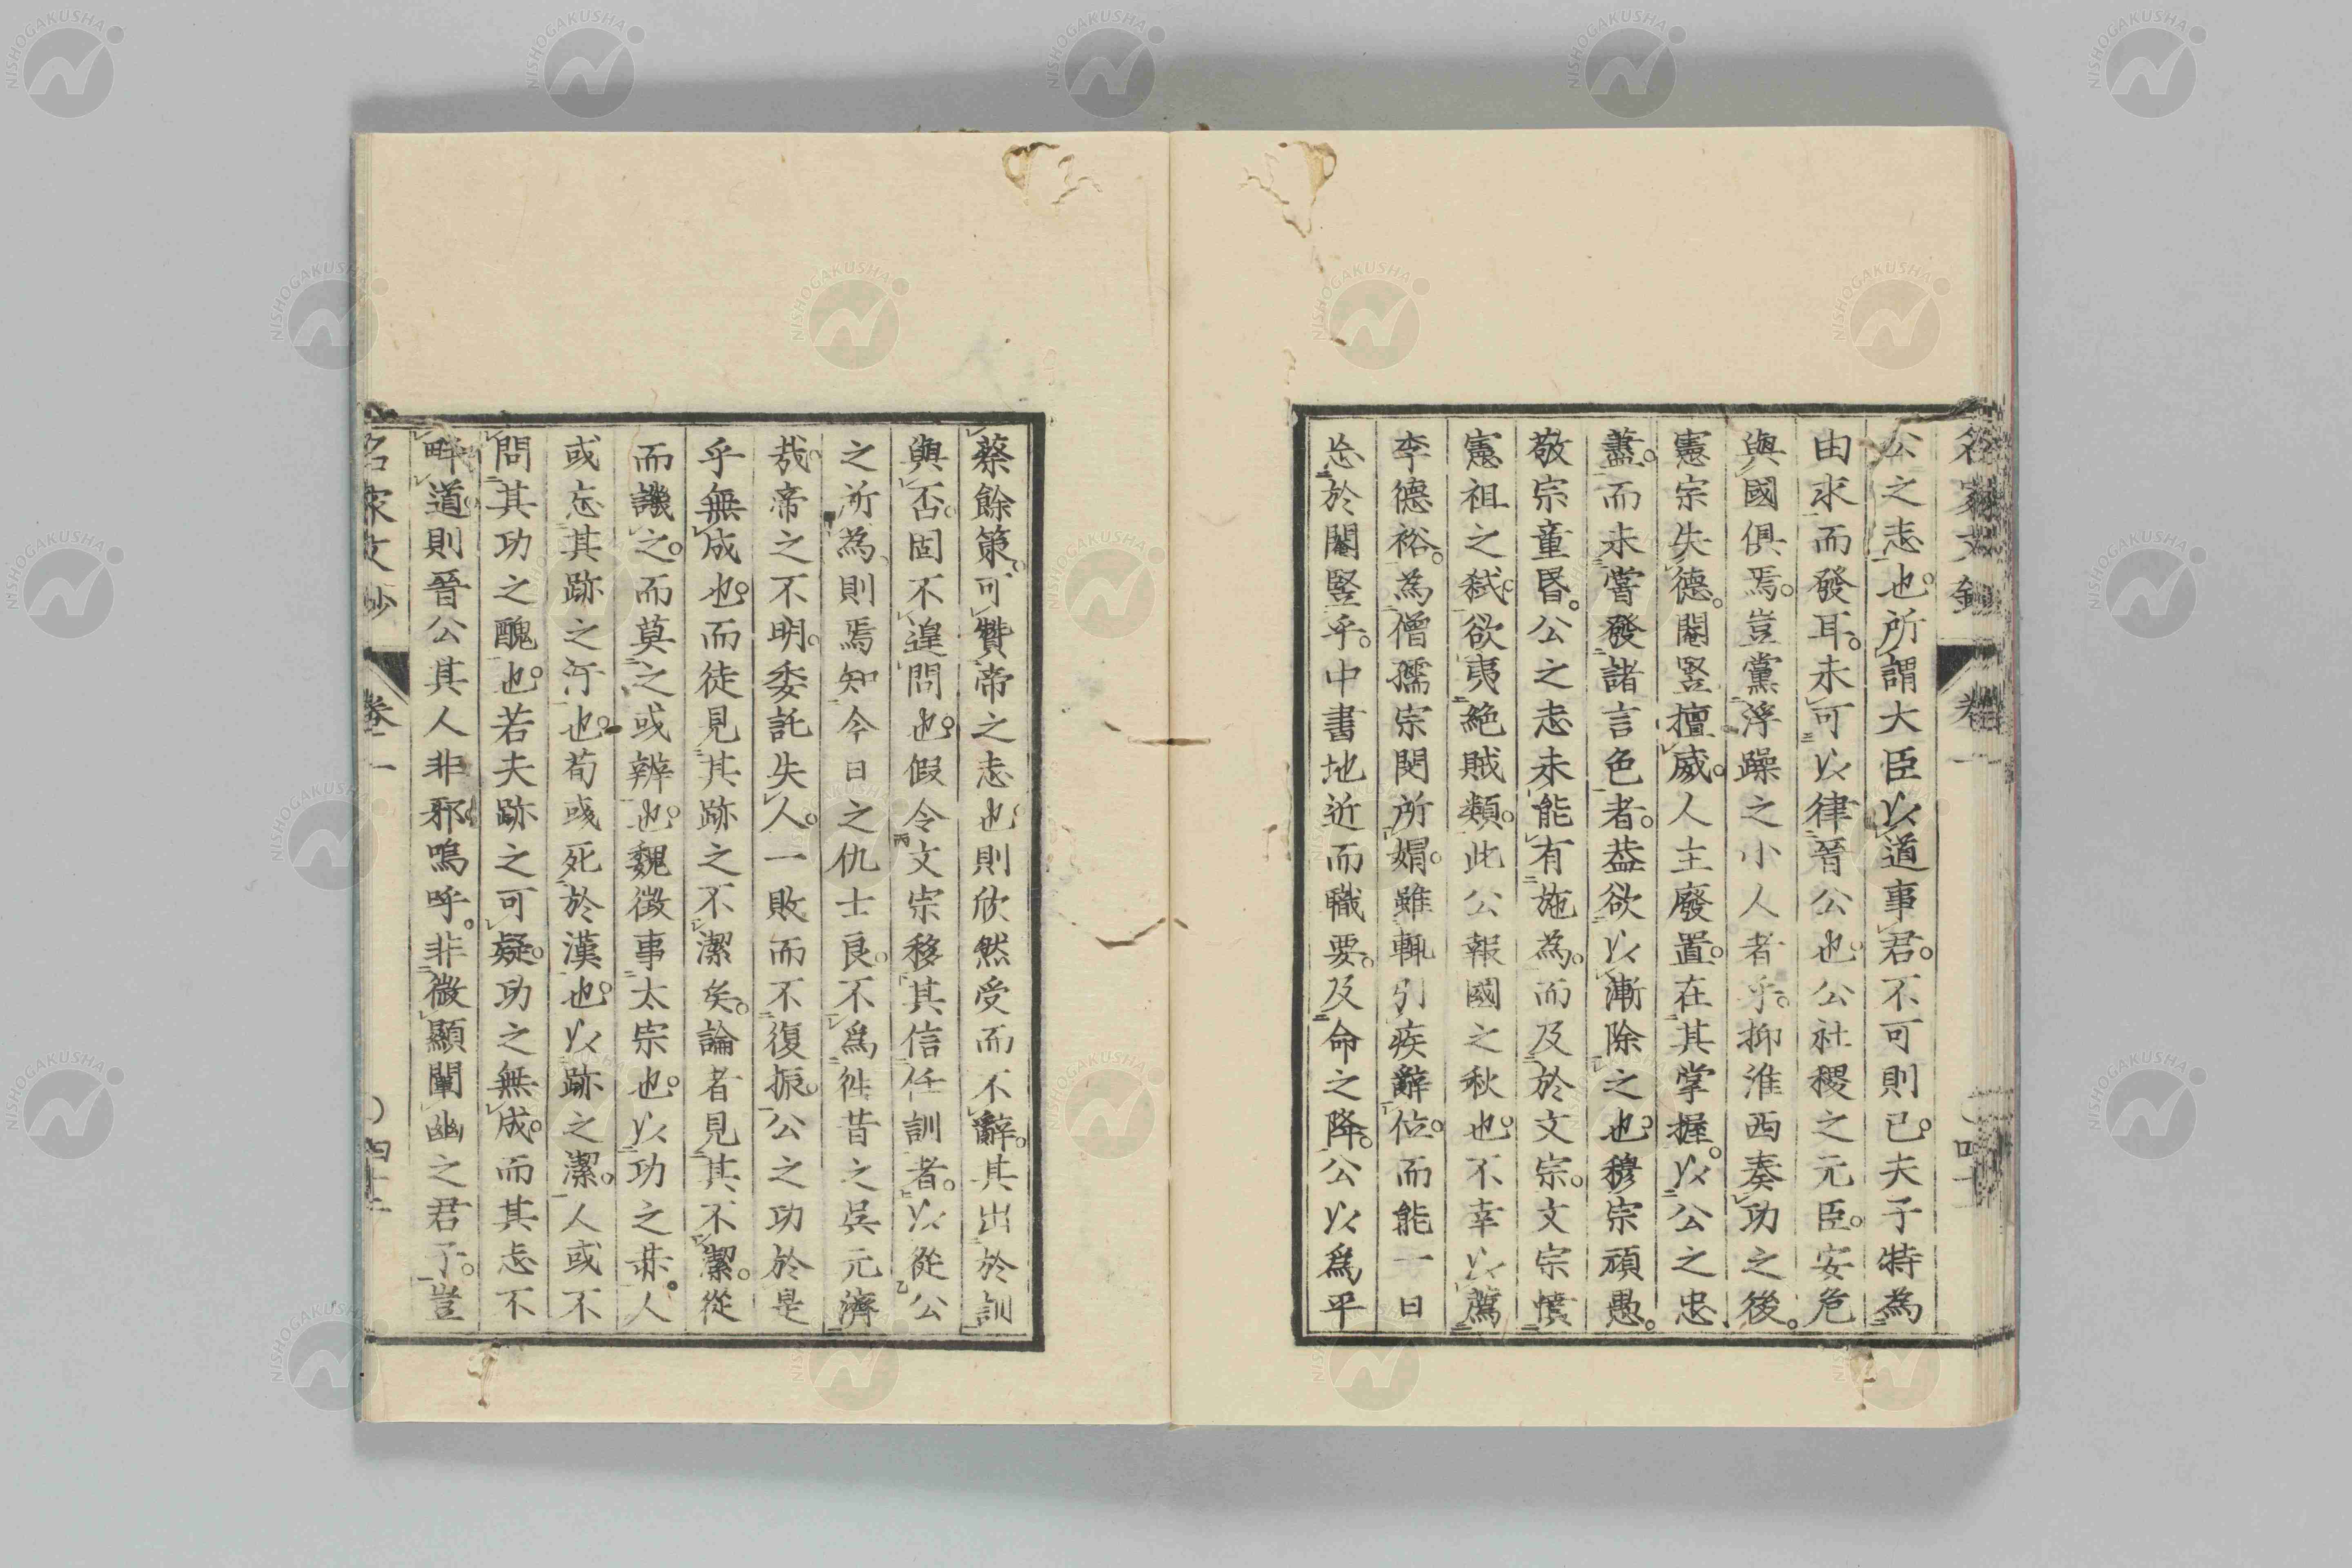 名家文鈔 卷一
公之志也。所謂大臣以道事君。不可則已。夫子特為
由求而發耳。未可以律晉公也。公社稷之元臣。安危
與國俱焉。豈黨浮躁之小人者乎。抑淮西奏功之後。
憲宗失德。閹竪擅威。人主廢置。在其掌握。以公之忠
藎。而未嘗發諸言色者。葢欲以漸除之也。穆宗頑愚。
敬宗童昏。公之志未能有施為。而及於文宗。文宗憤
憲祖之弑。欲夷絶賊類。此公報國之秋也。不幸以薦
李德裕。為僧孺宗閔所媢。雖輒引疾辭位。而能一日
忘於閹竪乎。中書地近而職要。及命之降。公以爲平
蔡餘策。可贊帝之志也。則欣然受而不辭。其出於訓
與否。固不遑問也。假令文宗移其信任訓者。以從公
之所為、則焉知今日之仇士良。不爲徃昔之吳元濟
哉。帝之不明。委託失人。一敗而不復振。公之功於是
乎無成也。而徒見其跡之不潔矣。論者見其不潔。從
而譏之。而莫之或辨也。魏徴事太宗也。以功之恭。人
或忘其跡之汚也。荀彧死於漢也。以跡之潔。人或不
問其功之醜也。若夫跡之可疑。功之無成。而其志不
畔道。則晉公其人非邪。嗚呼。非微顯闡幽之君子。豈
名家文鈔 卷一